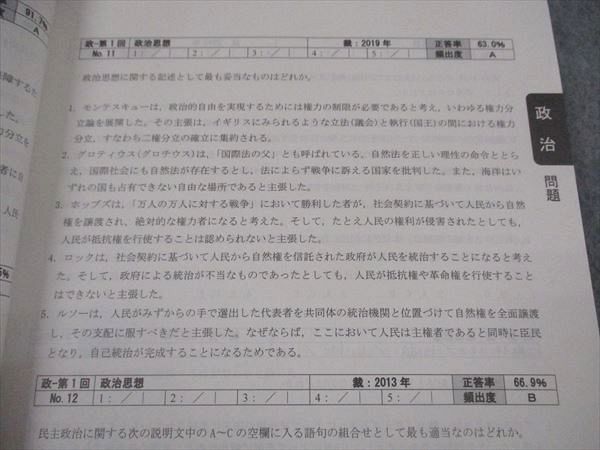 91.7%
A
政-第1回 政治思想 裁:2019年 正答率 63.0%
No.11 1:／ 2:／ 3:／ 4:／ 5:／ 頻出度 A
政治思想に関する記述として最も妥当なものはどれか。
1. モンテスキューは、政治的自由を実現するためには権力の制限が必要であると考え、いわゆる権力分
立論を展開した。その主張は、イギリスにみられるような立法(議会)と執行(国王)の間における権力
分立、すなわち二権分立の確立に集約される。
2. グロティウス(グロチウス)は、「国際法の父」とも呼ばれている。自然法を正しい理性の命令ととら
え、国際社会にも自然法が存在するとし、法によらず戦争に訴える国家を批判した。また、海洋はい
ずれの国も占有できない自由な場所であると主張した。
3. ホッブズは、「万人の万人に対する戦争」において勝利した者が、社会契約に基づいて人民から自然
権を譲渡され、絶対的な権力者になると考えた。そして、たとえ人民の権利が侵害されたとしても、
人民が抵抗権を行使することは認められないと主張した。
4. ロックは、社会契約に基づいて人民から自然権を信託された政府が人民を統治することになると考え
た。そして、政府による統治が不当なものであったとしても、人民が抵抗権や革命権を行使すること
はできないと主張した。
5. ルソーは、人民がみずからの手で選出した代表者を共同体の統治機関と位置づけて自然権を全面譲渡
し、その支配に服すべきだと主張した。なぜならば、ここにおいて人民は主権者であると同時に臣民
となり、自己統治が完成することになるためである。
政-第1回 政治思想 裁:2013年 正答率 66.9%
No.12 1:／ 2:／ 3:／ 4:／ 5:／ 頻出度 B
民主政治に関する次の説明文中のA～Cの空欄に入る語句の組合せとして最も適当なのはどれか。
政治
問題